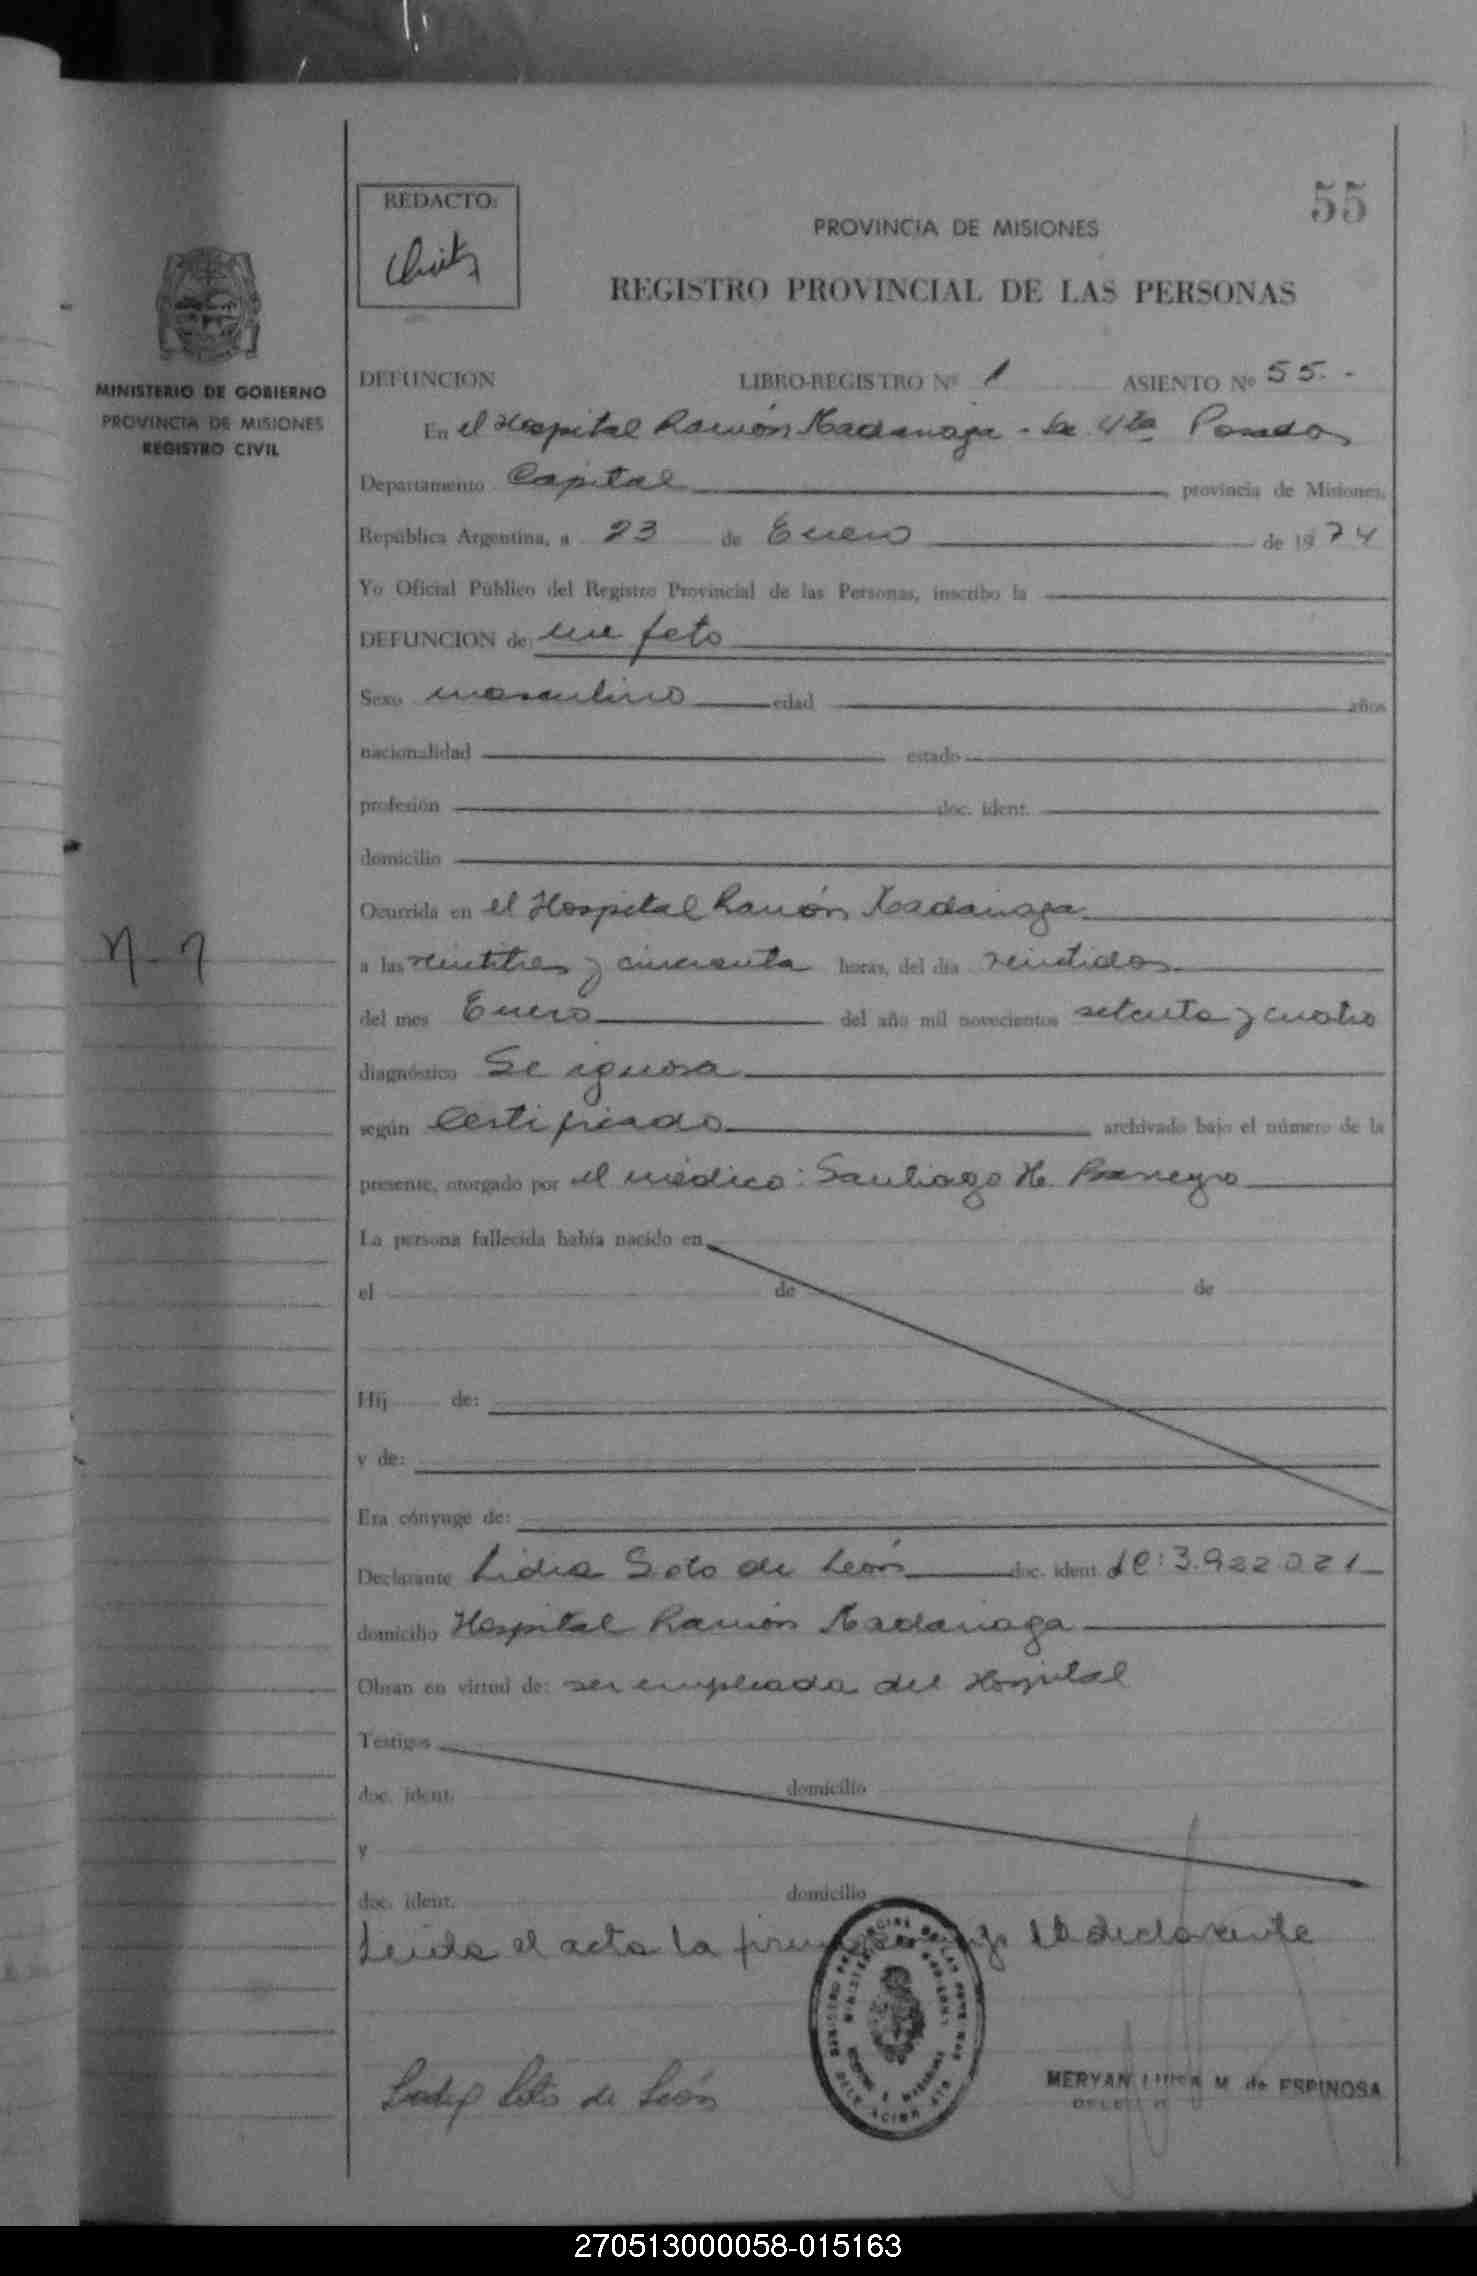 55
REDACTO:
PROVINCIA DE MISIONES
REGISTRO PROVINCIAL DE LAS PERSONAS
MINISTERIO DE GOBIERNO
PROVINCIA DE MISIONES
REGISTRO CIVIL
DEFUNCION LIBRO-REGISTRO Nº 1 ASIENTO Nº 55.-
En el Hospital Ramón Madariaga - Se. 4ta Posadas
Departamento Capital provincia de Misiones,
República Argentina, a 23 de Enero de 1974
Yo Oficial Público del Registro Provincial de las Personas, inscribo la
DEFUNCION de: un feto
Sexo masculino edad años
nacionalidad estado
profesión doc. ident.
domicilio
Ocurrida en el Hospital Ramón Madariaga
N-N
a las veintitres y cincuenta horas, del día veintidos
del mes Enero del año mil novecientos setenta y cuatro
diagnóstico Se ignora
según Certificado archivado bajo el número de la
presente, otorgado por el médico: Santiago H.
La persona fallecida había nacido en
el de de
Hij de:
y de:
Era cónyuge de:
Declarante Lidia Soto de León doc. ident. LC: 3.922.021
domicilio Hospital Ramón Madariaga
Obran en virtud de: ser empleada del Hospital
Testigos
doc. ident. domicilio
y
doc. ident. domicilio
Leida el acta la la declarante
Soto de León
MERYAN LUISA M. de ESPINOSA
270513000058-015163